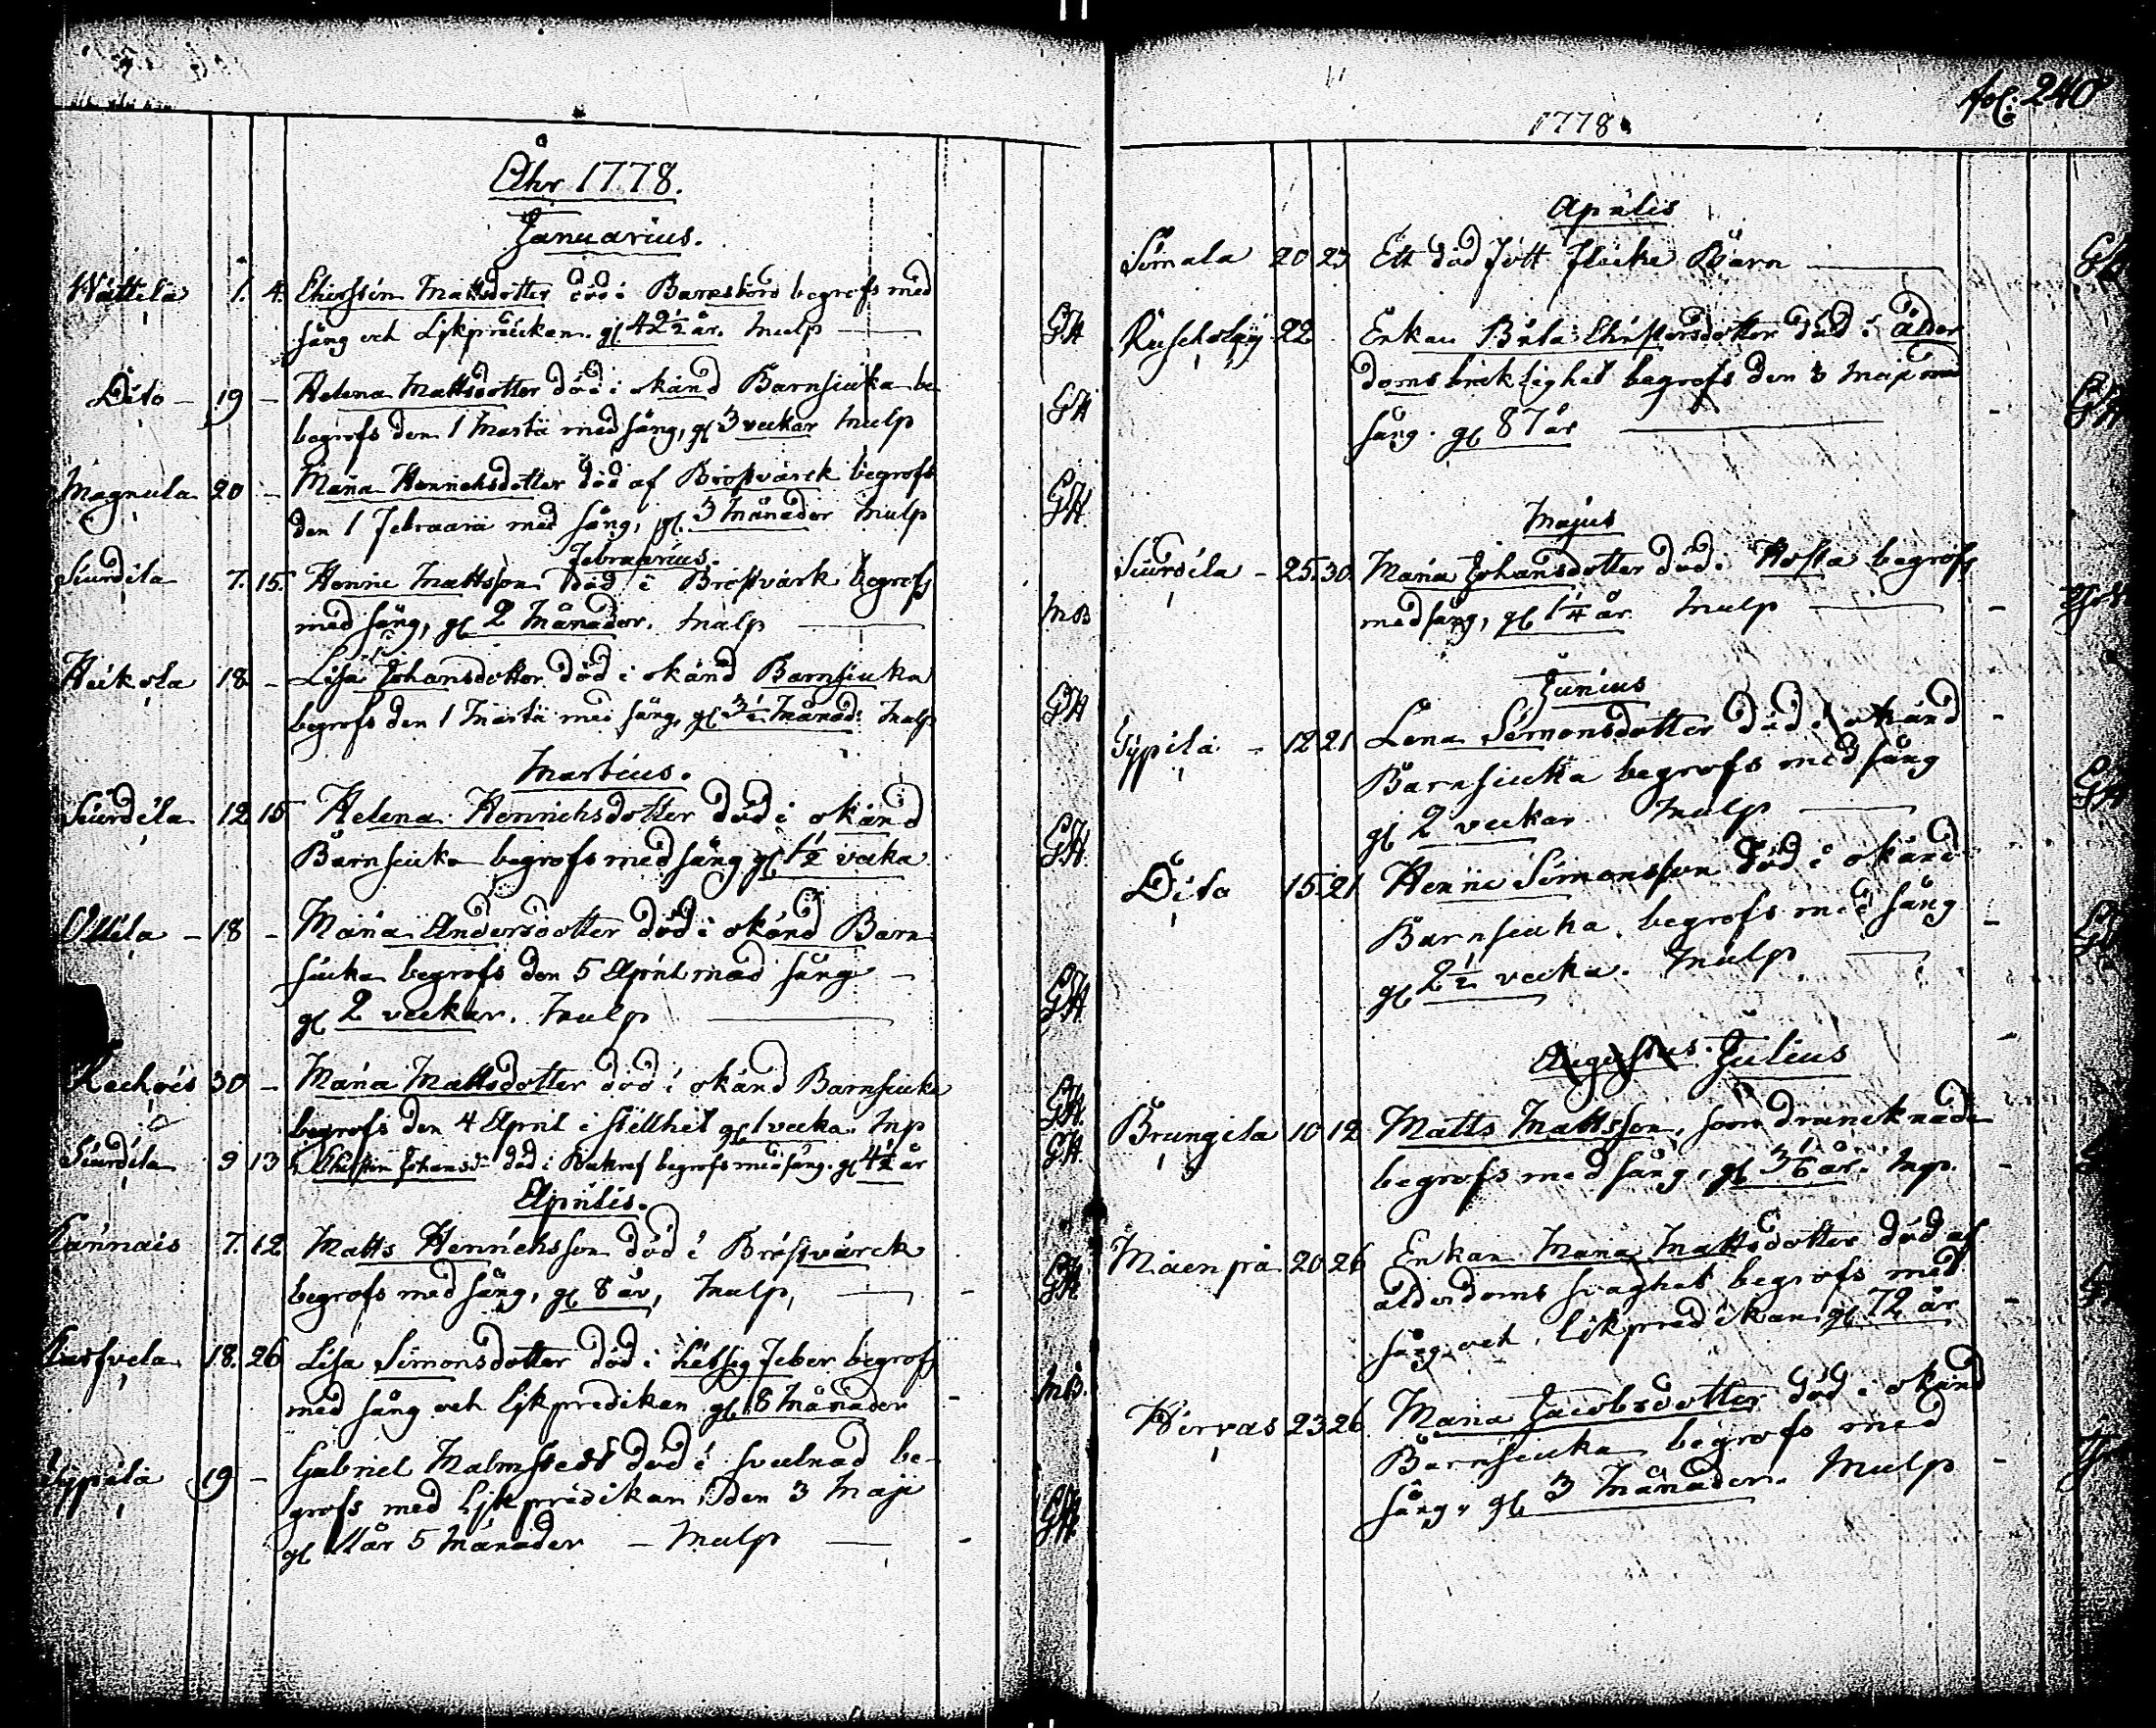 Åhr 1778.
Januarius.
Wättilä 1. 4. Christin Mattsdotter död i Barnsbörd begrofs med
sång och Lijkpredikan. gl 42½ år. Mulp GH
Dito 19 Helena Mattsdotter död i okänd Barnsiuka be
begrofs den 1 Martii med sång, gl 3 veckor Mulp GH
Magnula 20 Maria Henrichsdotter död af Bröstvärck begrofs
den 1 Februarii med sång, gl. 3 Månader Mulp GH
Februarius.
Siurdila 7. 15. Henric Mattsson död i Bröstvärk begrofs
med sång, gl 2 Månader. Mulp MB
Heikola 18 Lisa Johansdotter död i okänd Barnsiuka
begrofs den 1 Martii med sång, gl 3½ Månad: Mulp GH
Martius.
Siurdila 12 15 Helena Henrichsdotter död i okänd
Barnsiuka begrofs med sång gl 1½ vecka GH
Ollila 18 Maria Andersdotter död i okänd Barn
siuka begrofs den 5 April med sång
gl 2 veckor. Mulp GH
30 Maria Mattsdotter död i okänd Barnsiuka
begrofs den 4 April i stillhet gl 1 vecka. Mp GH
Siurdila 9 13 Christin Johansd: död i begrofs med sång. gl 4½ år GH
Aprilis.
7. 12 Matts Henrichsson död i Bröstvärck
begrofs med sång, gl 8 år, Mulp, GH
18. 26 Lisa Simonsdotter död i hetsig Feber begrofs
med sång och Lijkpredikan gl 8 Månader MB.
19 Gabriel Malmstedt död i svulnad be-
grofs med Lijkpredikan, den 3 Maji
gl 11 år 5 Månader Mulp GH
Fol: 240
1778
Aprilis
Simala 20 23 Ett död född Flicke Barn
22 Enkan Brita Christersdotter död i ålder
doms bräcklighet begrofs den 3 Maji med
sång. gl 87 år GH
Majus
Siurdila 25. 30. Maria Johansdotter död i Hosta begrofs
med sång, gl 1¼ år Mulp
Junius
Yypilä 12 21 Lena Simonsdotter död i okänd
Barnsiuka begrofs med sång
gl 2 veckor Mulp GH
Dito 15. 21 Henric Simonsson död i okänd
Barnsiuka. begrofs med sång
gl 2½ vecka. Mulp
Augustus. Julius
Brungila 10 12 Matts Mattsson, som druncknade
begrofs med sång, gl 3 1/6 år. Mp.
Mäenpä 20 26 Enkan Maria Mattsdotter död af
ålderdoms svaghet begrofs med
sång och Lijkpredikan gl 72 år
Hirvas 23 26. Maria Jacobsdotter död i okänd
Barnsiuka begrofs med
sång, gl 3 Månader. Mulp